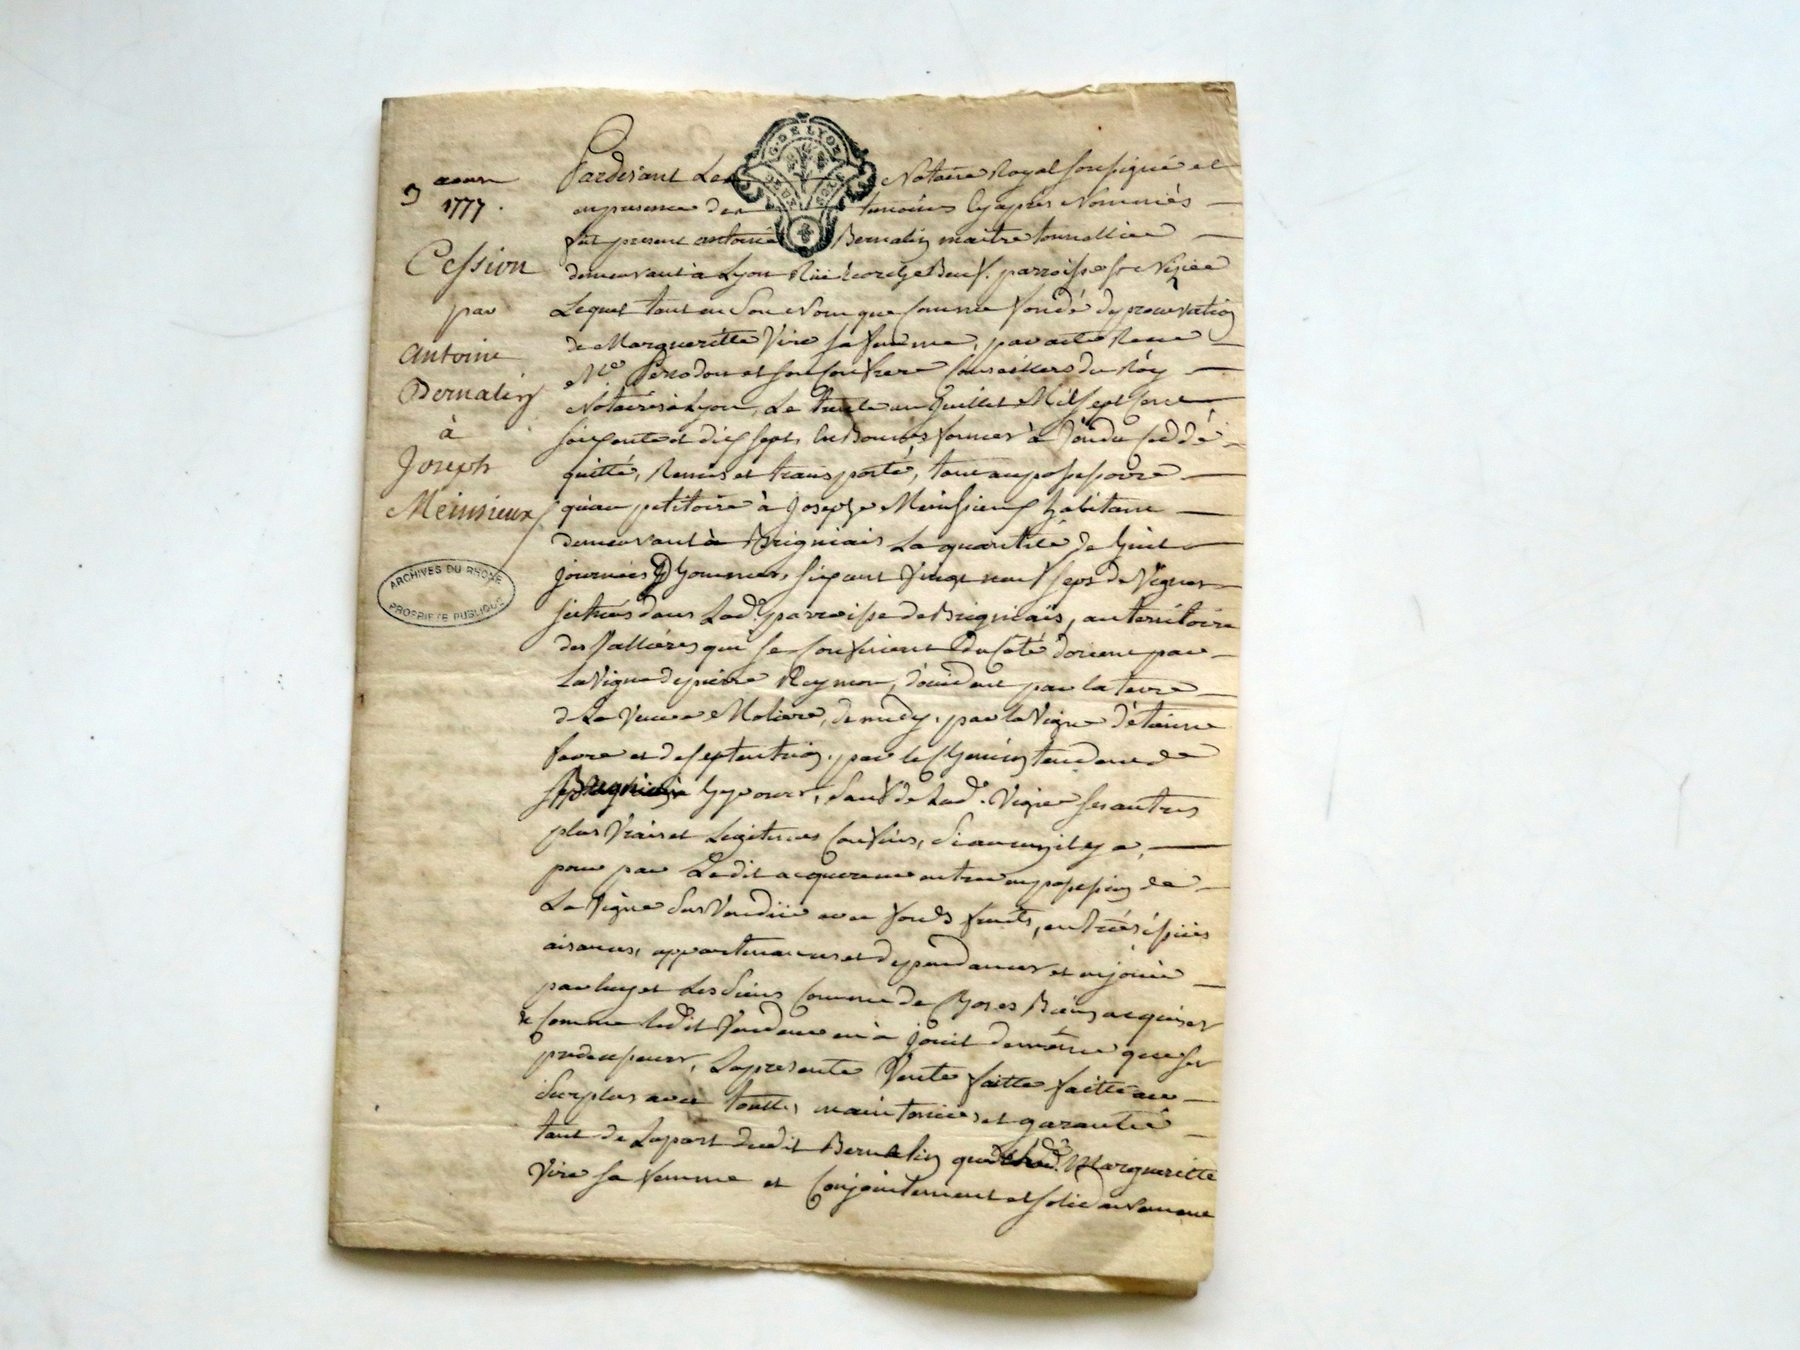 3 aoust
1777.
Cession
par
antoine
Bernalin
à
Joseph
Meinsieux
ARCHIVES DU RHONE
PROPRIETE PUBLIQUE
G. DE LYON
DEUX SOLS
Pardevant Le Notaire Royal soussigné et
en presence des temoins cy après Nommés
fut present antoine Bernalin maitre tonnellier
demeurant à Lyon Rüe écorche Beuf. parroisse st Nizier
Lequel tant en son Nom que comme fondé de procuration
de Margueritte Vire sa femme, par acte Receu
Me. et son confrere Conseillers du Roy
Notaires à Lyon, Le trente un Juillet Mil sept cent
soixante et dix sept, en Bonnes formes à vendu ceddé
quitté, Remis et transporté, tant au possessoire
qu'au petitoire à Joseph Meinsieux habitant
demeurant à Brignais La quantité de huit
journées D hommées six cent vingt neuf seps de Vignes
scitués dans Lade. parroisse de Brignais, au territoire
des qui se confinent Du Coté d'orient par
La Vigne de pierre Reymon, d'occident par la terre
de La Veuve Moliere, de midy. par la Vigne d'étienne
favre et de septentrion. par le Chemin tendant de
Brignais sauf de Lade. Vigne ses autres
plus Vrais et Legitimes Confins, si aucun il y a,
pour par Ledit acquereur entrer en possession de
La Vigne sus Vendüe avec fonds fruits, entrées issües
aisances, appartenances et dependances et en jouir
par luy et Les siens Comme de Choses Bien acquises
& Comme ledit Vendeur en à jouit de même que ses
predecesseurs, La presente Vente faitte faitte au
surplus avec touttes maintenües et garantie
tant de La part dudit Bernalin que de lad. Margueritte
Vire sa femme et Conjointement et solidairement